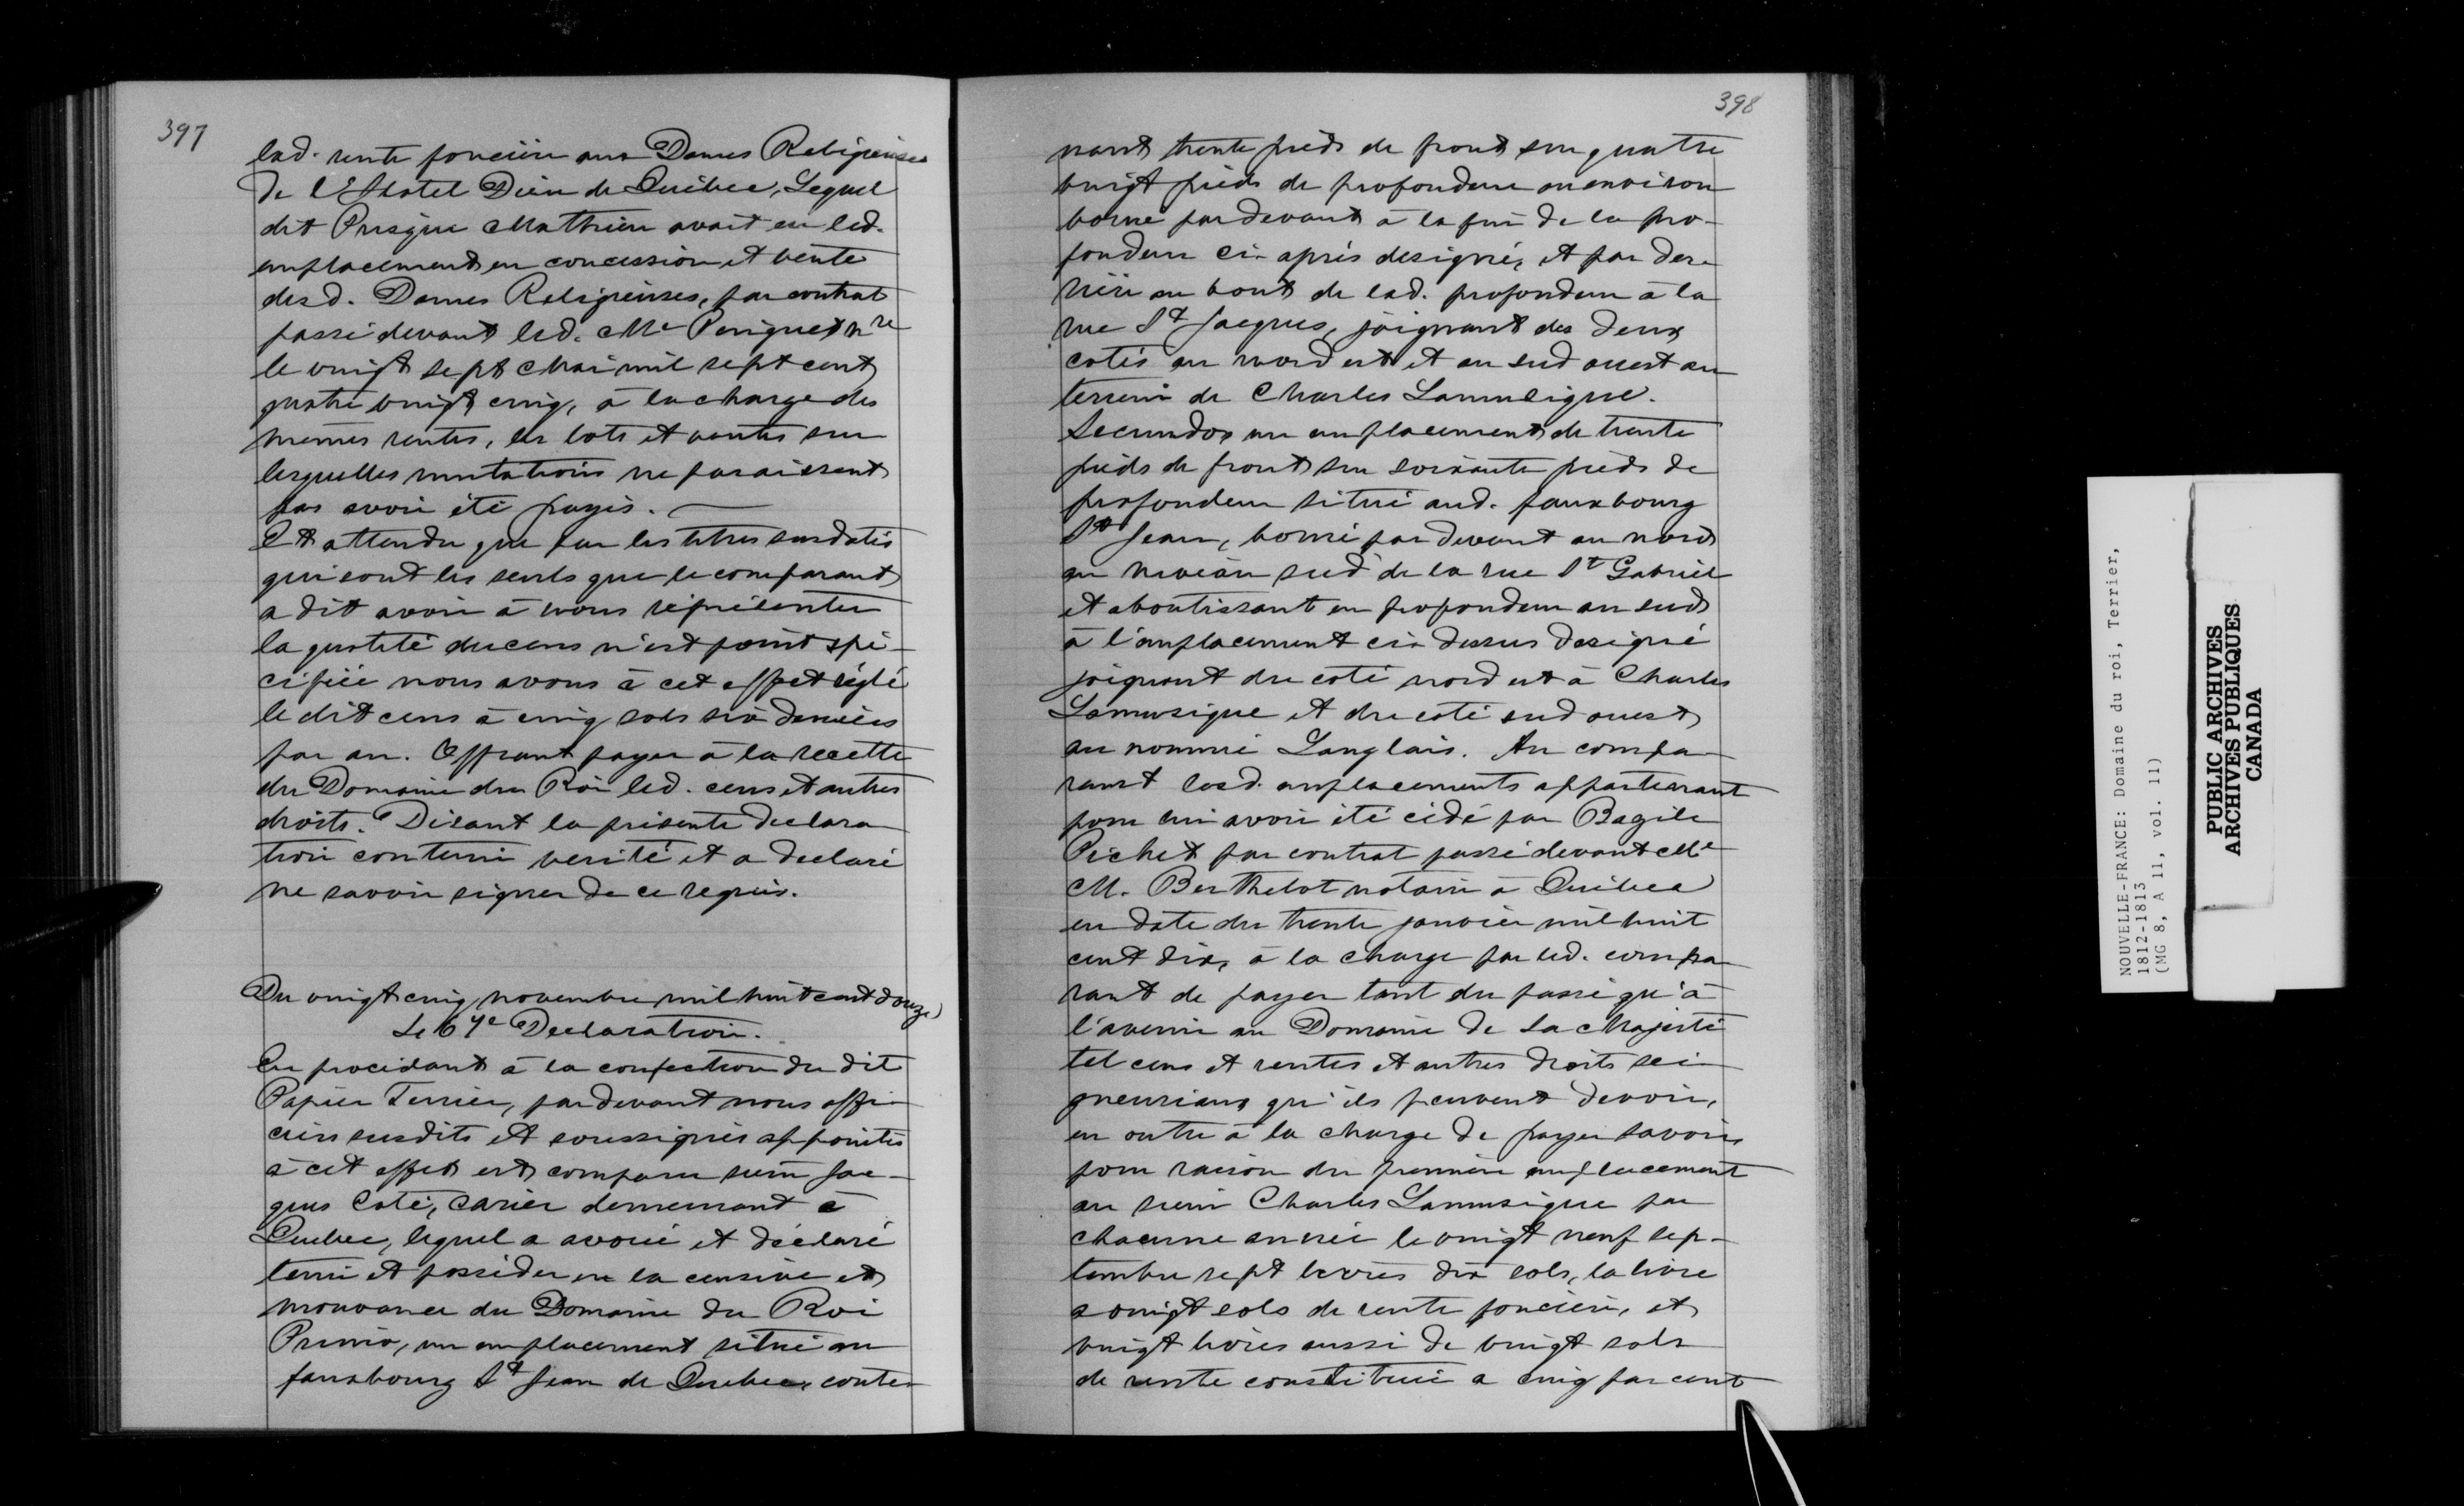 397
lad. rente foncière aux Dames Religieuses
de l'Hotel Dieu de Québec, Lequel
dit Prisque Mathieu avait eu led.
emplacement en concession et vente
desd. Dames Religieuses, par contrat
passé devant led. Me Pinguet Nre
le vingt sept Mai mil sept cent
quatre vingt cinq, à la charge des
mêmes rentes, les lots et ventes sur
lesquelles mutations ne paraissent
pas avoir été payés.
Et attendu que par les titres susdatés
qui sont les seuls que le comparant
a dit avoir à nous réprésenter
la quotité du cens n'est point spé-
cifiée nous avons à cet effet réglé
le dit cens à cinq sols six deniers
par an. Offrant payer à la recette
du Domaine du Roi led. cens et autres
droits. Disant la présente declara
tion contenir verité et a declaré
ne savoir signer de ce requis.
Du vingt cinq novembre mil huit cent douze
Le 67e Declaration.
En procédant à la confection du dit
Papier Terrier, pardevant nous offi-
ciers susdits et soussignés appointés
à cet effet est comparu sieur Jac-
ques Coté, carrier demeurant à
Quebec, lequel a avoué et déclaré
tenir et posséder en la censive et
mouvance du Domaine du Roi
Primo, un emplacement situé au
fauxbourg St Jean de Quebec, conte-
398
nant trente pieds de front sur quatre
vingt pieds de profondeur ou environ
borné par devant à la fin de la pro-
fondeur ci-après designé, et par der-
rière au bout de lad. profondeur à la
rue St Jacques, joignant des deux
cotés au nord est et au sud ouest au
terrein de Charles Lamusique.
Secundo, un emplacement de trente
pieds de front sur soixante pieds de
profondeur situé aud. fauxbourg
St Jean, borné par devant au nord
au niveau sud de la rue St Gabriel
et aboutissant en profondeur au sud
à l'emplacement ci-dessus designé
joignant du coté nord est à Charles
Lamusique et du coté sud ouest
au nommé Langlais. Au compa-
rant lesd. emplacements appartenant
pour lui avoir été cédé par Bazile
Pichet par contrat passé devant Me
M. Berthelot notaire à Québec
en date du trente janvier mil huit
cent dix, à la charge par led. compa
rant de payer tant du passé qu'à
l'avenir au Domaine de Sa Majesté
tel cens et rentes et autres droits sei-
gneuriaux qu'ils peuvent devoir,
en outre à la charge de payer savoir
pour raison du premier emplacement
au sieur Charles Lamusique par
chacune année le vingt neuf sep-
tembre sept livres dix sols, la livre
a vingt sols de rente foncière, et
vingt livres aussi de vingt sols
de rente constituée a cinq par cent
NOUVELLE-FRANCE: Domaine du roi, Terrier,
1812-1813
(MG 8, A 11, vol. 11)
PUBLIC ARCHIVES
ARCHIVES PUBLIQUES
CANADA